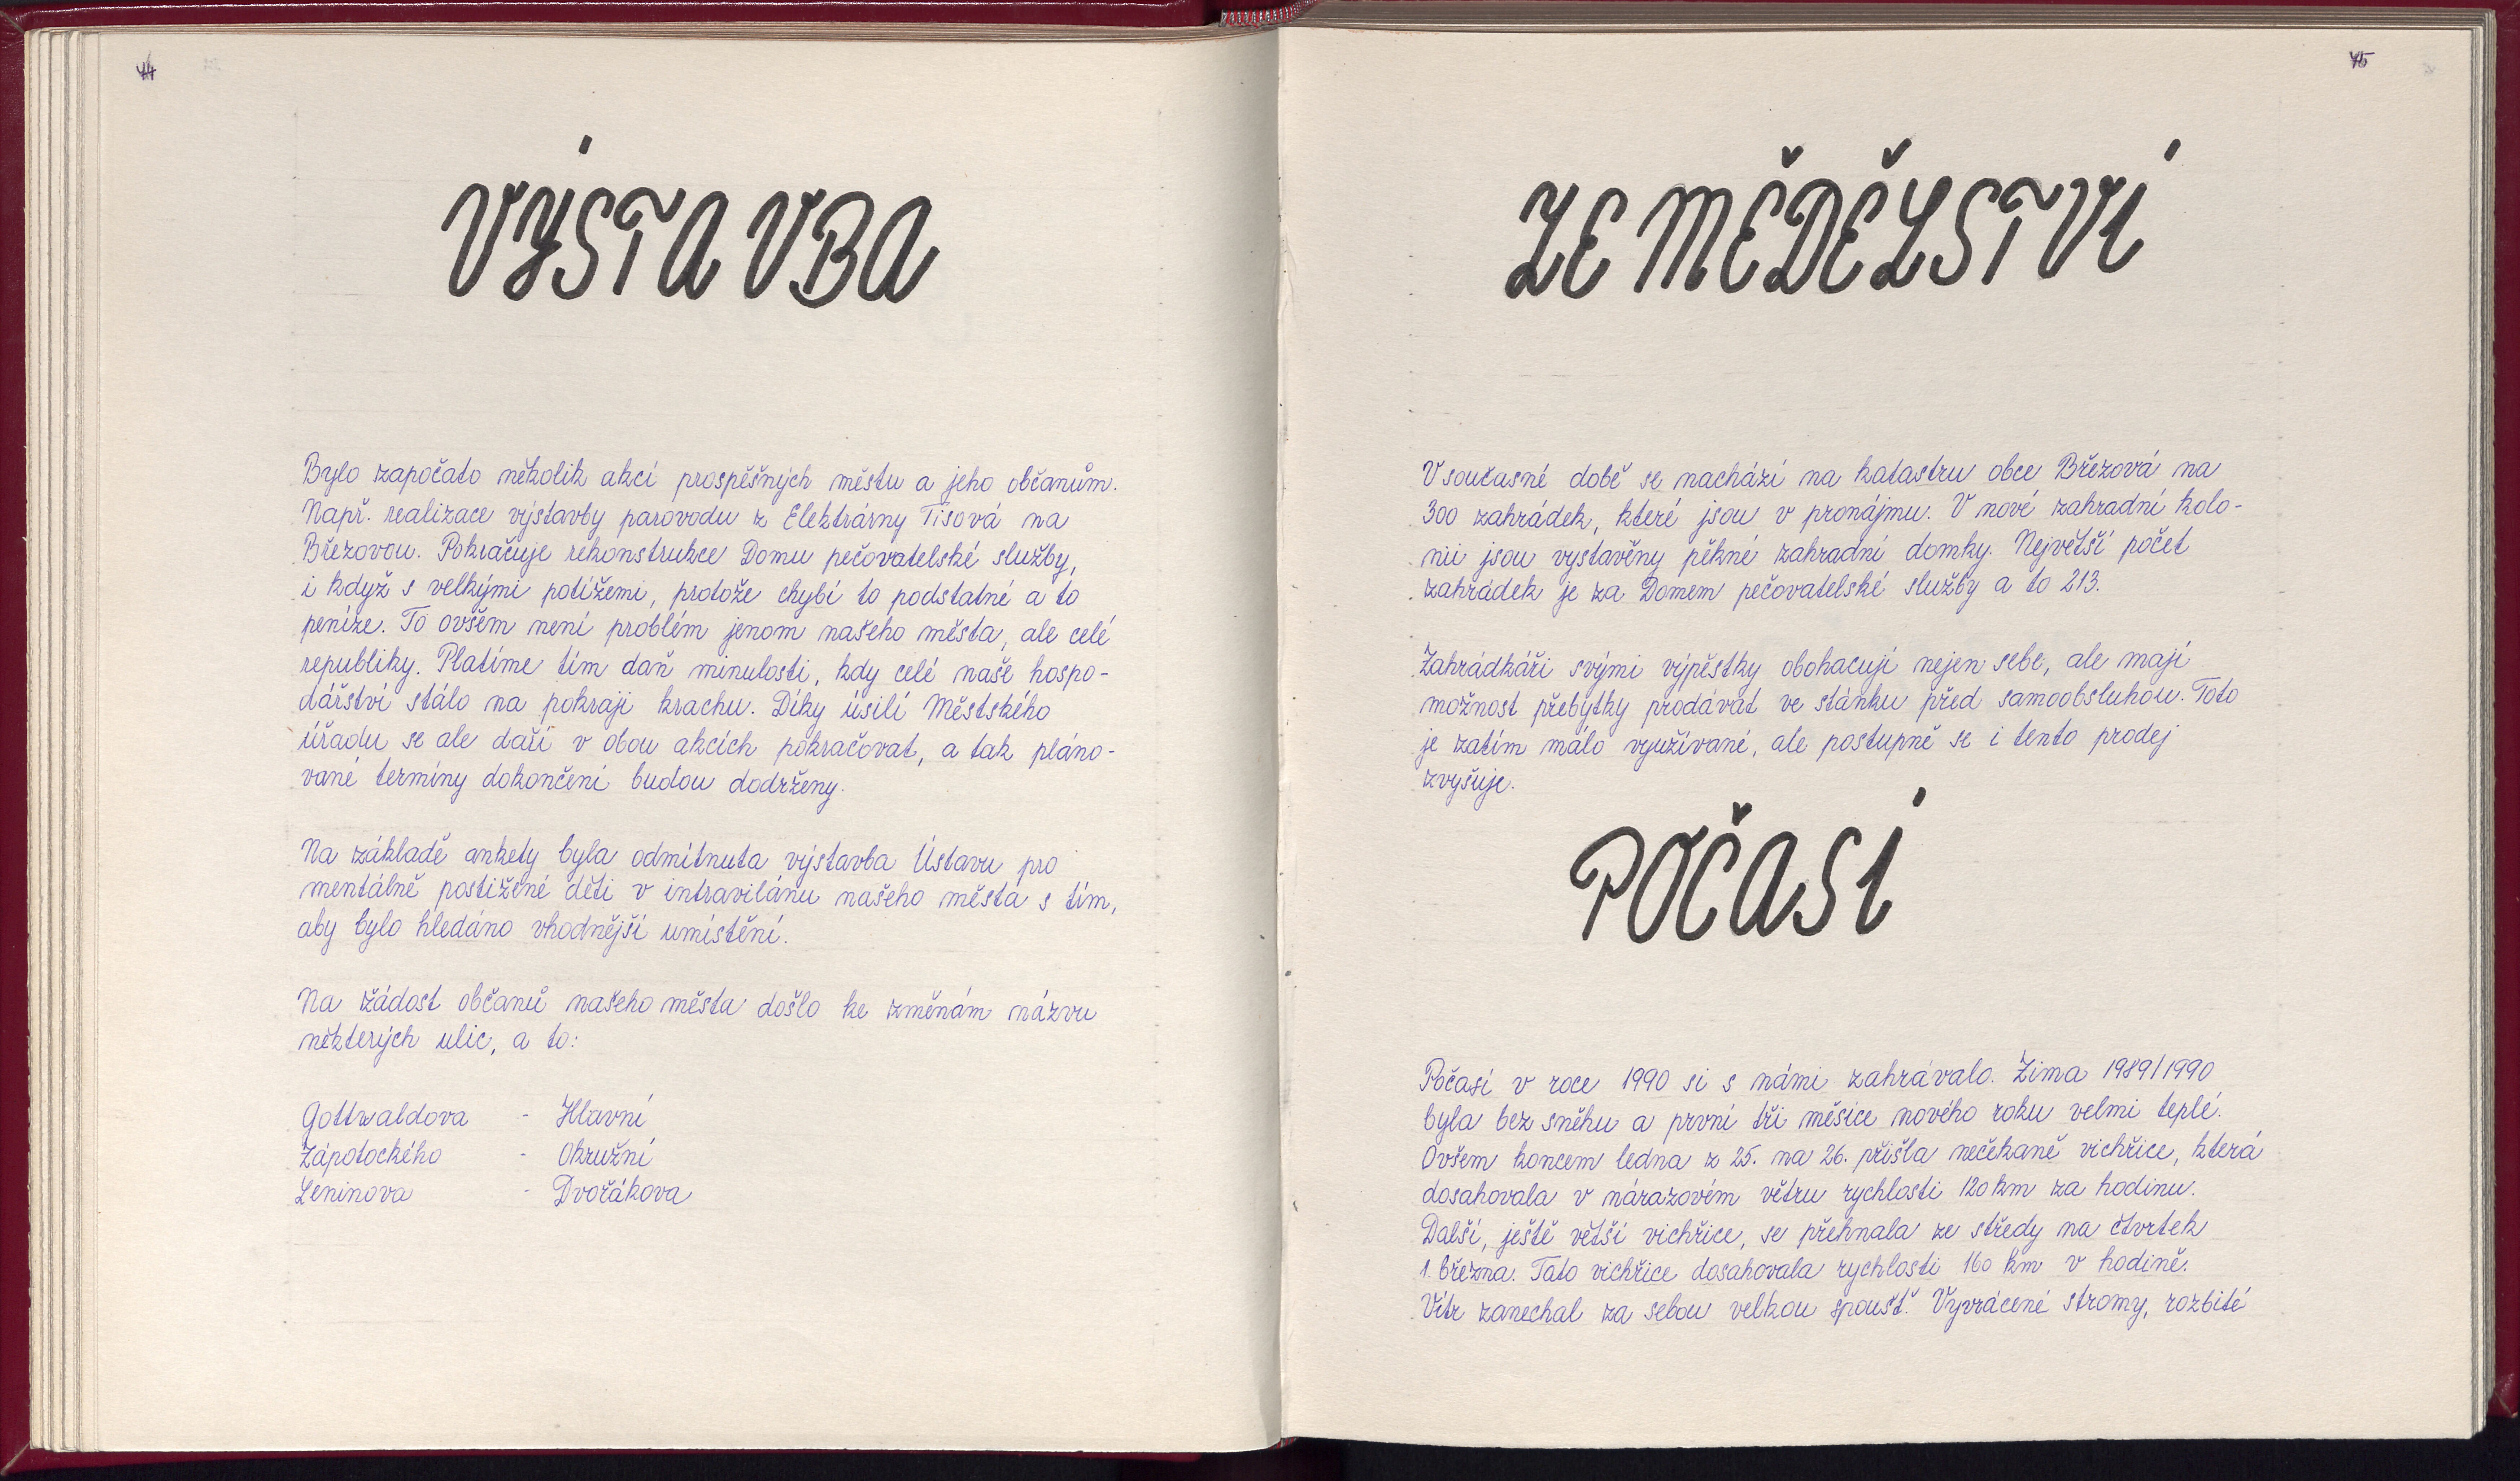 44
VÝSTAVBA
Bylo započato několik akcí prospěšných městu a jeho občanům.
Např. realizace výstavby parovodu z Elektrárny Tisová na
Březovou. Pokračuje rekonstrukce Domu pečovatelské služby,
i když s velkými potížemi, protože chybí to podstatné a to
peníze. To ovšem není problém jenom našeho města, ale celé
republiky. Platíme tím daň minulosti, kdy celé naše hospo-
dářství stálo na pokraji krachu. Díky úsilí Městského
úřadu se ale daří v obou akcích pokračovat, a tak pláno-
vané termíny dokončení budou dodrženy.
Na základě ankety byla odmítnuta výstavba Ústavu pro
mentálně postižené děti v intravilánu našeho města s tím,
aby bylo hledáno vhodnější umístění.
Na žádost občanů našeho města došlo ke změnám názvu
některých ulic, a to:
Gottwaldova - Hlavní
Zápotockého - Okružní
Leninova - Dvořákova
45
ZEMĚDĚLSTVÍ
V současné době se nachází na katastru obce Březová na
300 zahrádek, které jsou v pronájmu. V nové zahradní kolo-
nii jsou vystavěny pěkné zahradní domky. Největší počet
zahrádek je za Domem pečovatelské služby a to 213.
Zahrádkáři svými výpěstky obohacují nejen sebe, ale mají
možnost přebytky prodávat ve stánku před samoobsluhou. Toto
je zatím málo využívané, ale postupně se i tento prodej
zvyšuje.
POČASÍ
Počasí v roce 1990 si s námi zahrávalo. Zima 1989/1990
byla bez sněhu a první tři měsíce nového roku velmi teplé.
Ovšem koncem ledna z 25. na 26. přišla nečekaně vichřice, která
dosahovala v nárazovém větru rychlosti 120 km za hodinu.
Další, ještě větší vichřice, se přehnala ze středy na čtvrtek
1. března. Tato vichřice dosahovala rychlosti 160 km v hodině.
Vítr zanechal za sebou velkou spoušť. Vyvrácené stromy, rozbité